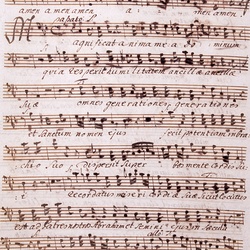 amen amen amen a men amen
Magnificat anima mea Dominum
quia respexit humilitatem ancillae ancillae
suae omnes generationes generationes
et Sanctum nomen ejus fecit potentiam in bra
chio suo dispersit super bos mente Cordis sui
Recordatus misericordiae suae sicut locutus
est ad patres nostros Abraham et semini ejus in saecula